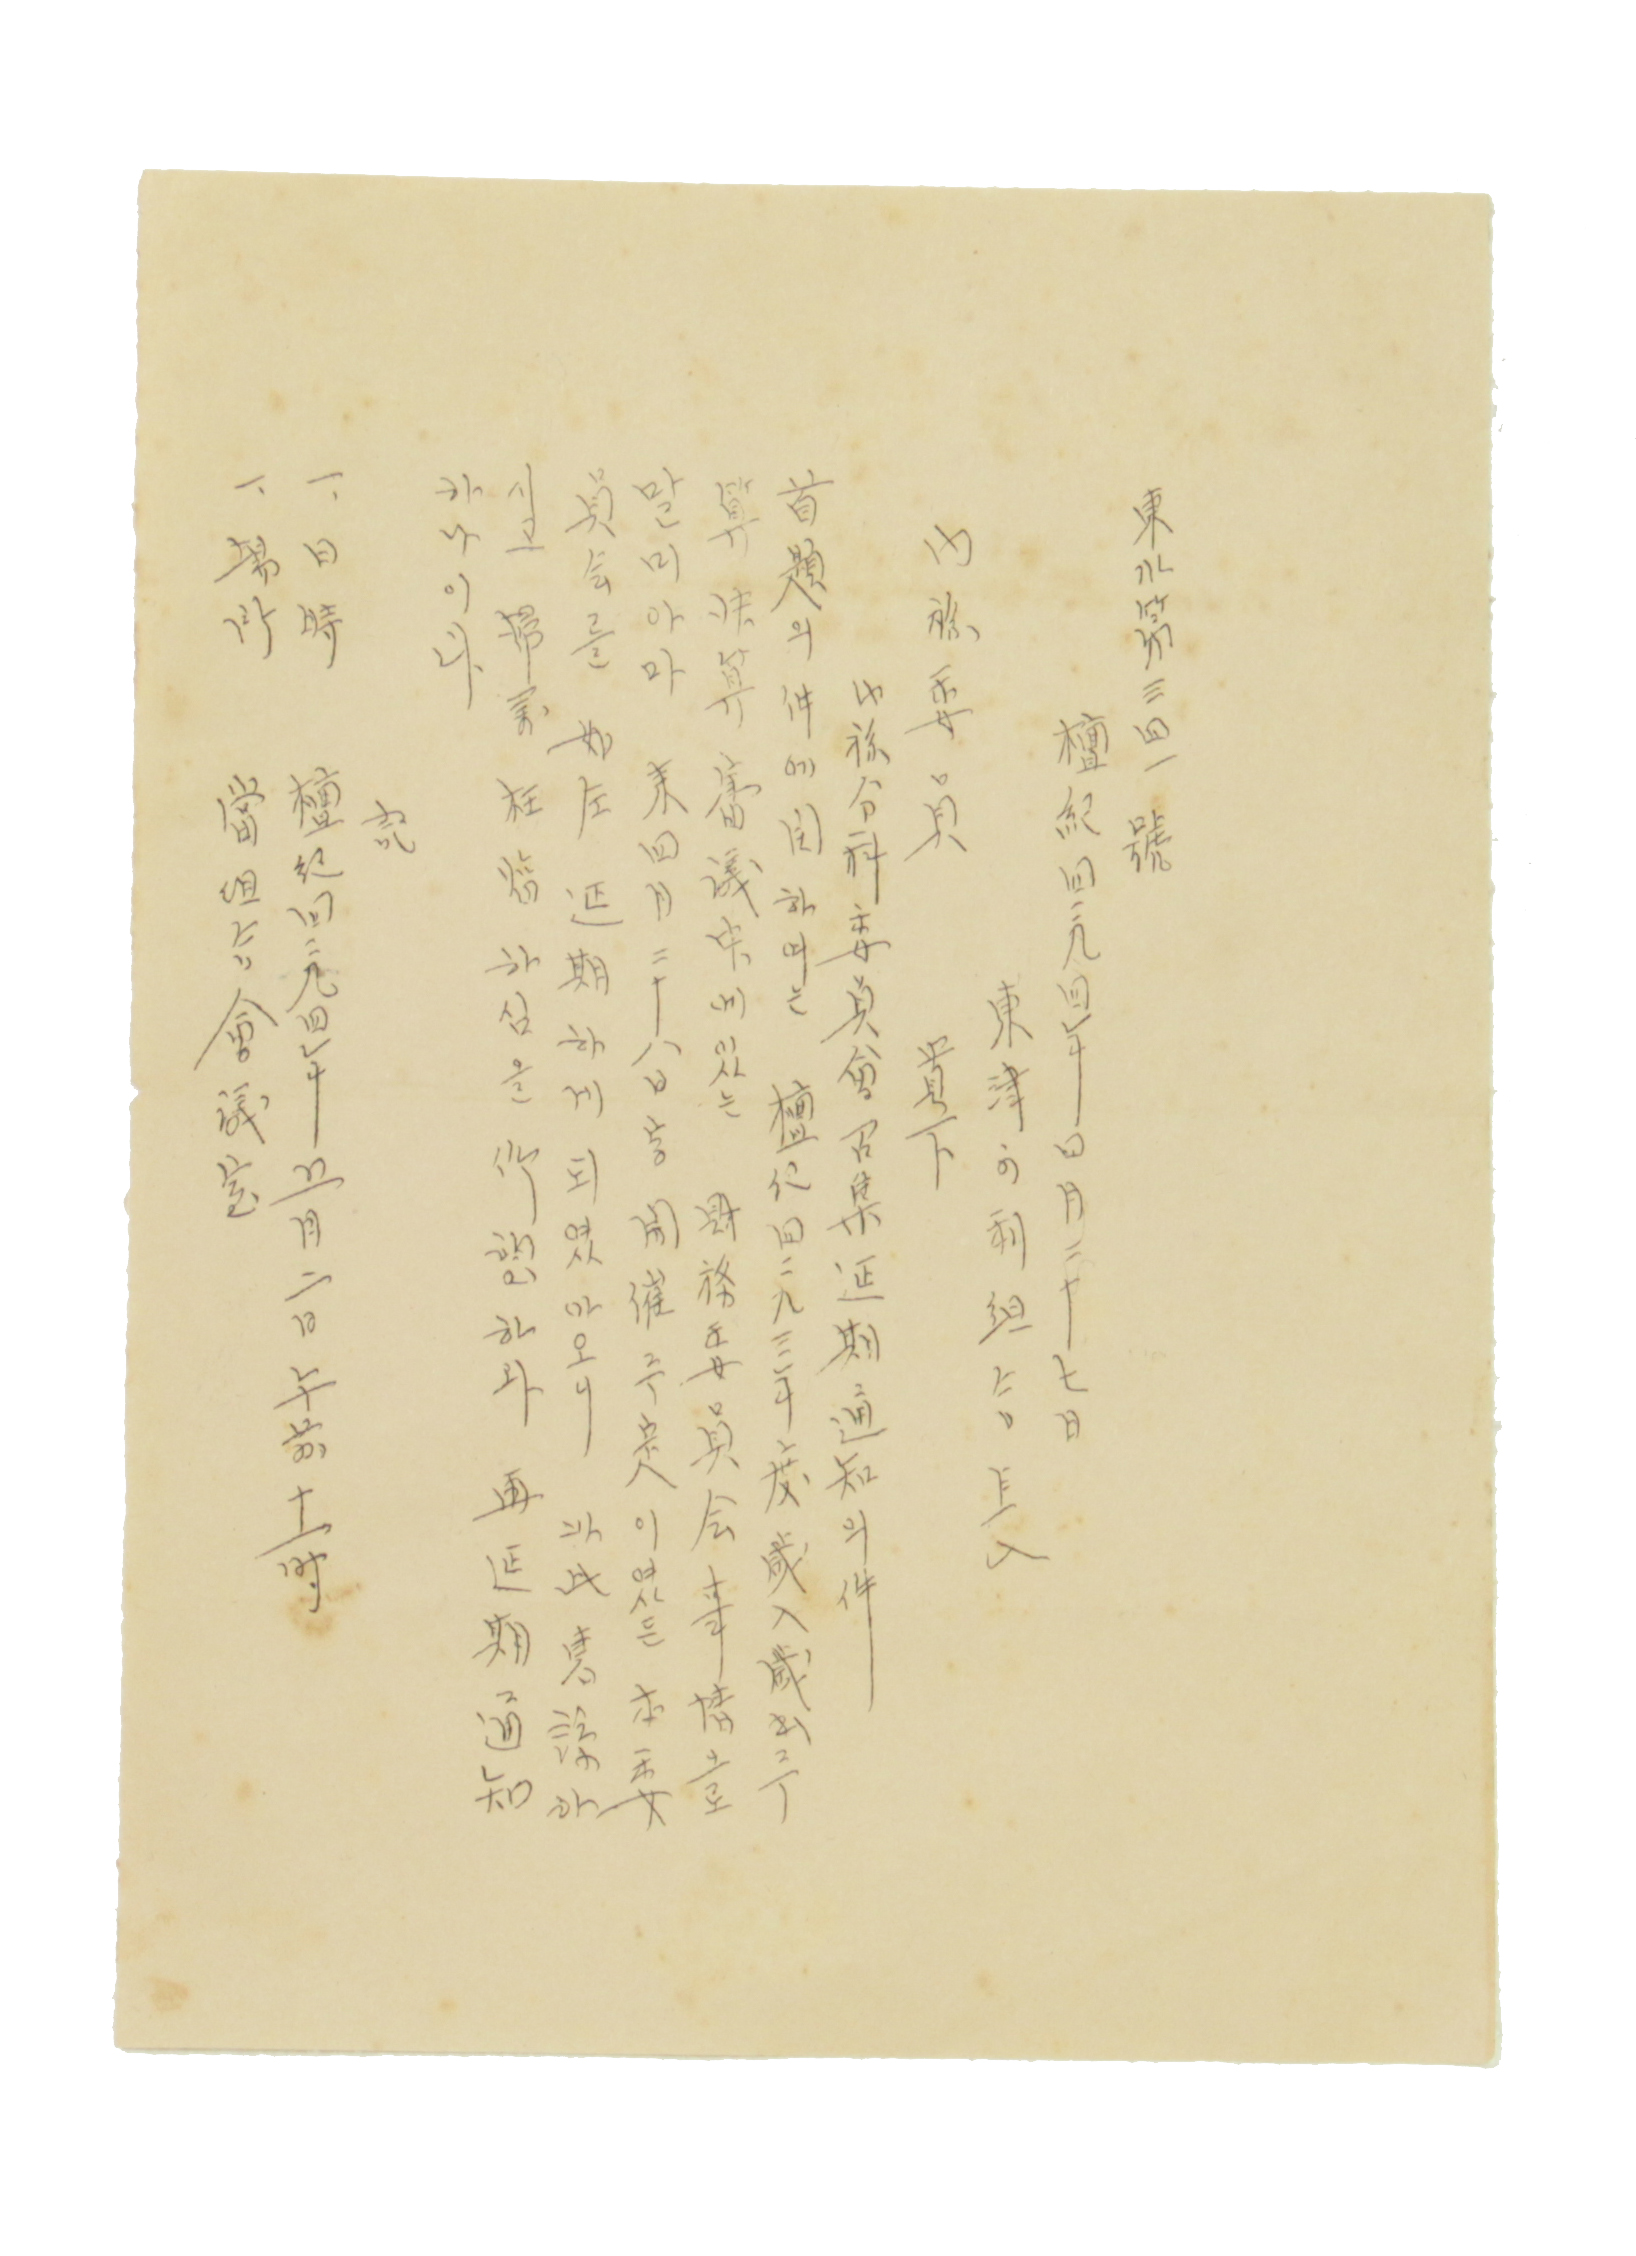 東水第三四一號
檀紀四二九四年四月二十七日
東津水利組合長
內務委員 貴下
內務分科委員會召集延期通知의件
首題의件에関하여는 檀紀四二九三年度歲入歲出予
算決算審議次에있는 財務委員会事情으로
말미아마 来四月二十八日 開催予定이였든 本委
員会를 如左延期하게되였아오니 以此惠諒하
시고 帶同 枉臨하심을 仰望하와 再延期通知
하나이다
記
一、日時 檀紀四二九四年五月二日午前十一時
一、場所 當組合會議室